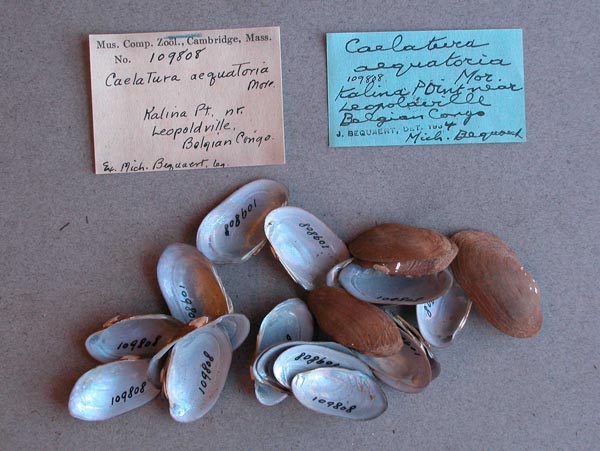 Mus. Comp. Zool., Cambridge, Mass.
No. 109808
Caelatura aequatoria
More.
Kalina Pt. nr.
Leopoldville,
Belgian Congo.
Ex. Mich. Bequaert, leg.
Caelatura
aequatoria
109808 Mor.
Kalina Point near
Leopoldville
Belgian Congo
J. BEQUAERT, DET.
Mich. Bequaert
109808
109808
109808
109808
109808
109808
109808
109808
109808